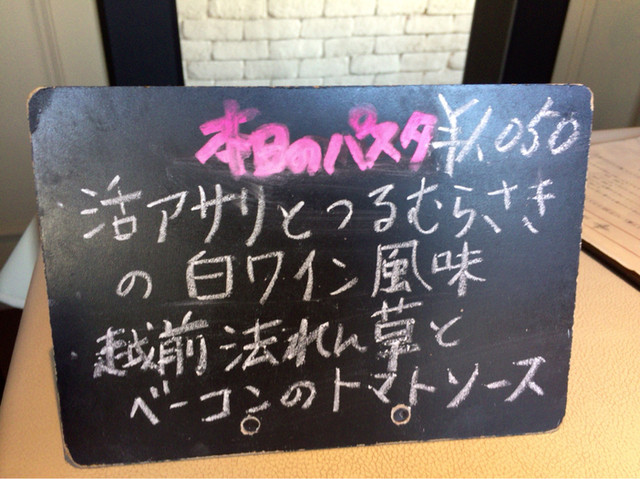 本日のパスタ ¥1,050
活アサリとつるむらさき
の白ワイン風味
越前法れん草と
ベーコンのトマトソース